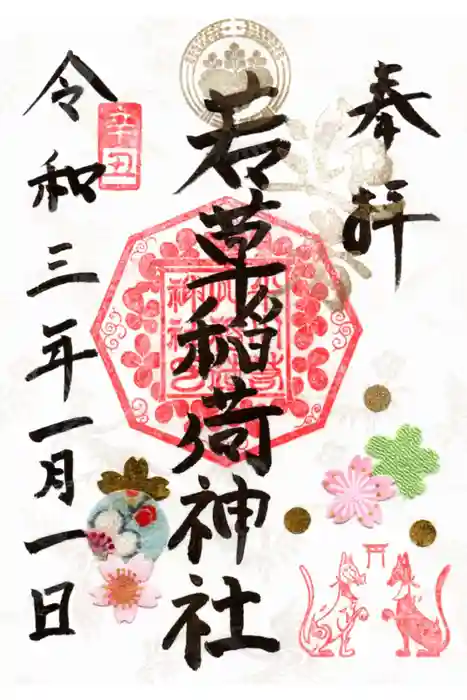 奉拝
若草稲荷神社
令和三年一月一日
辛丑